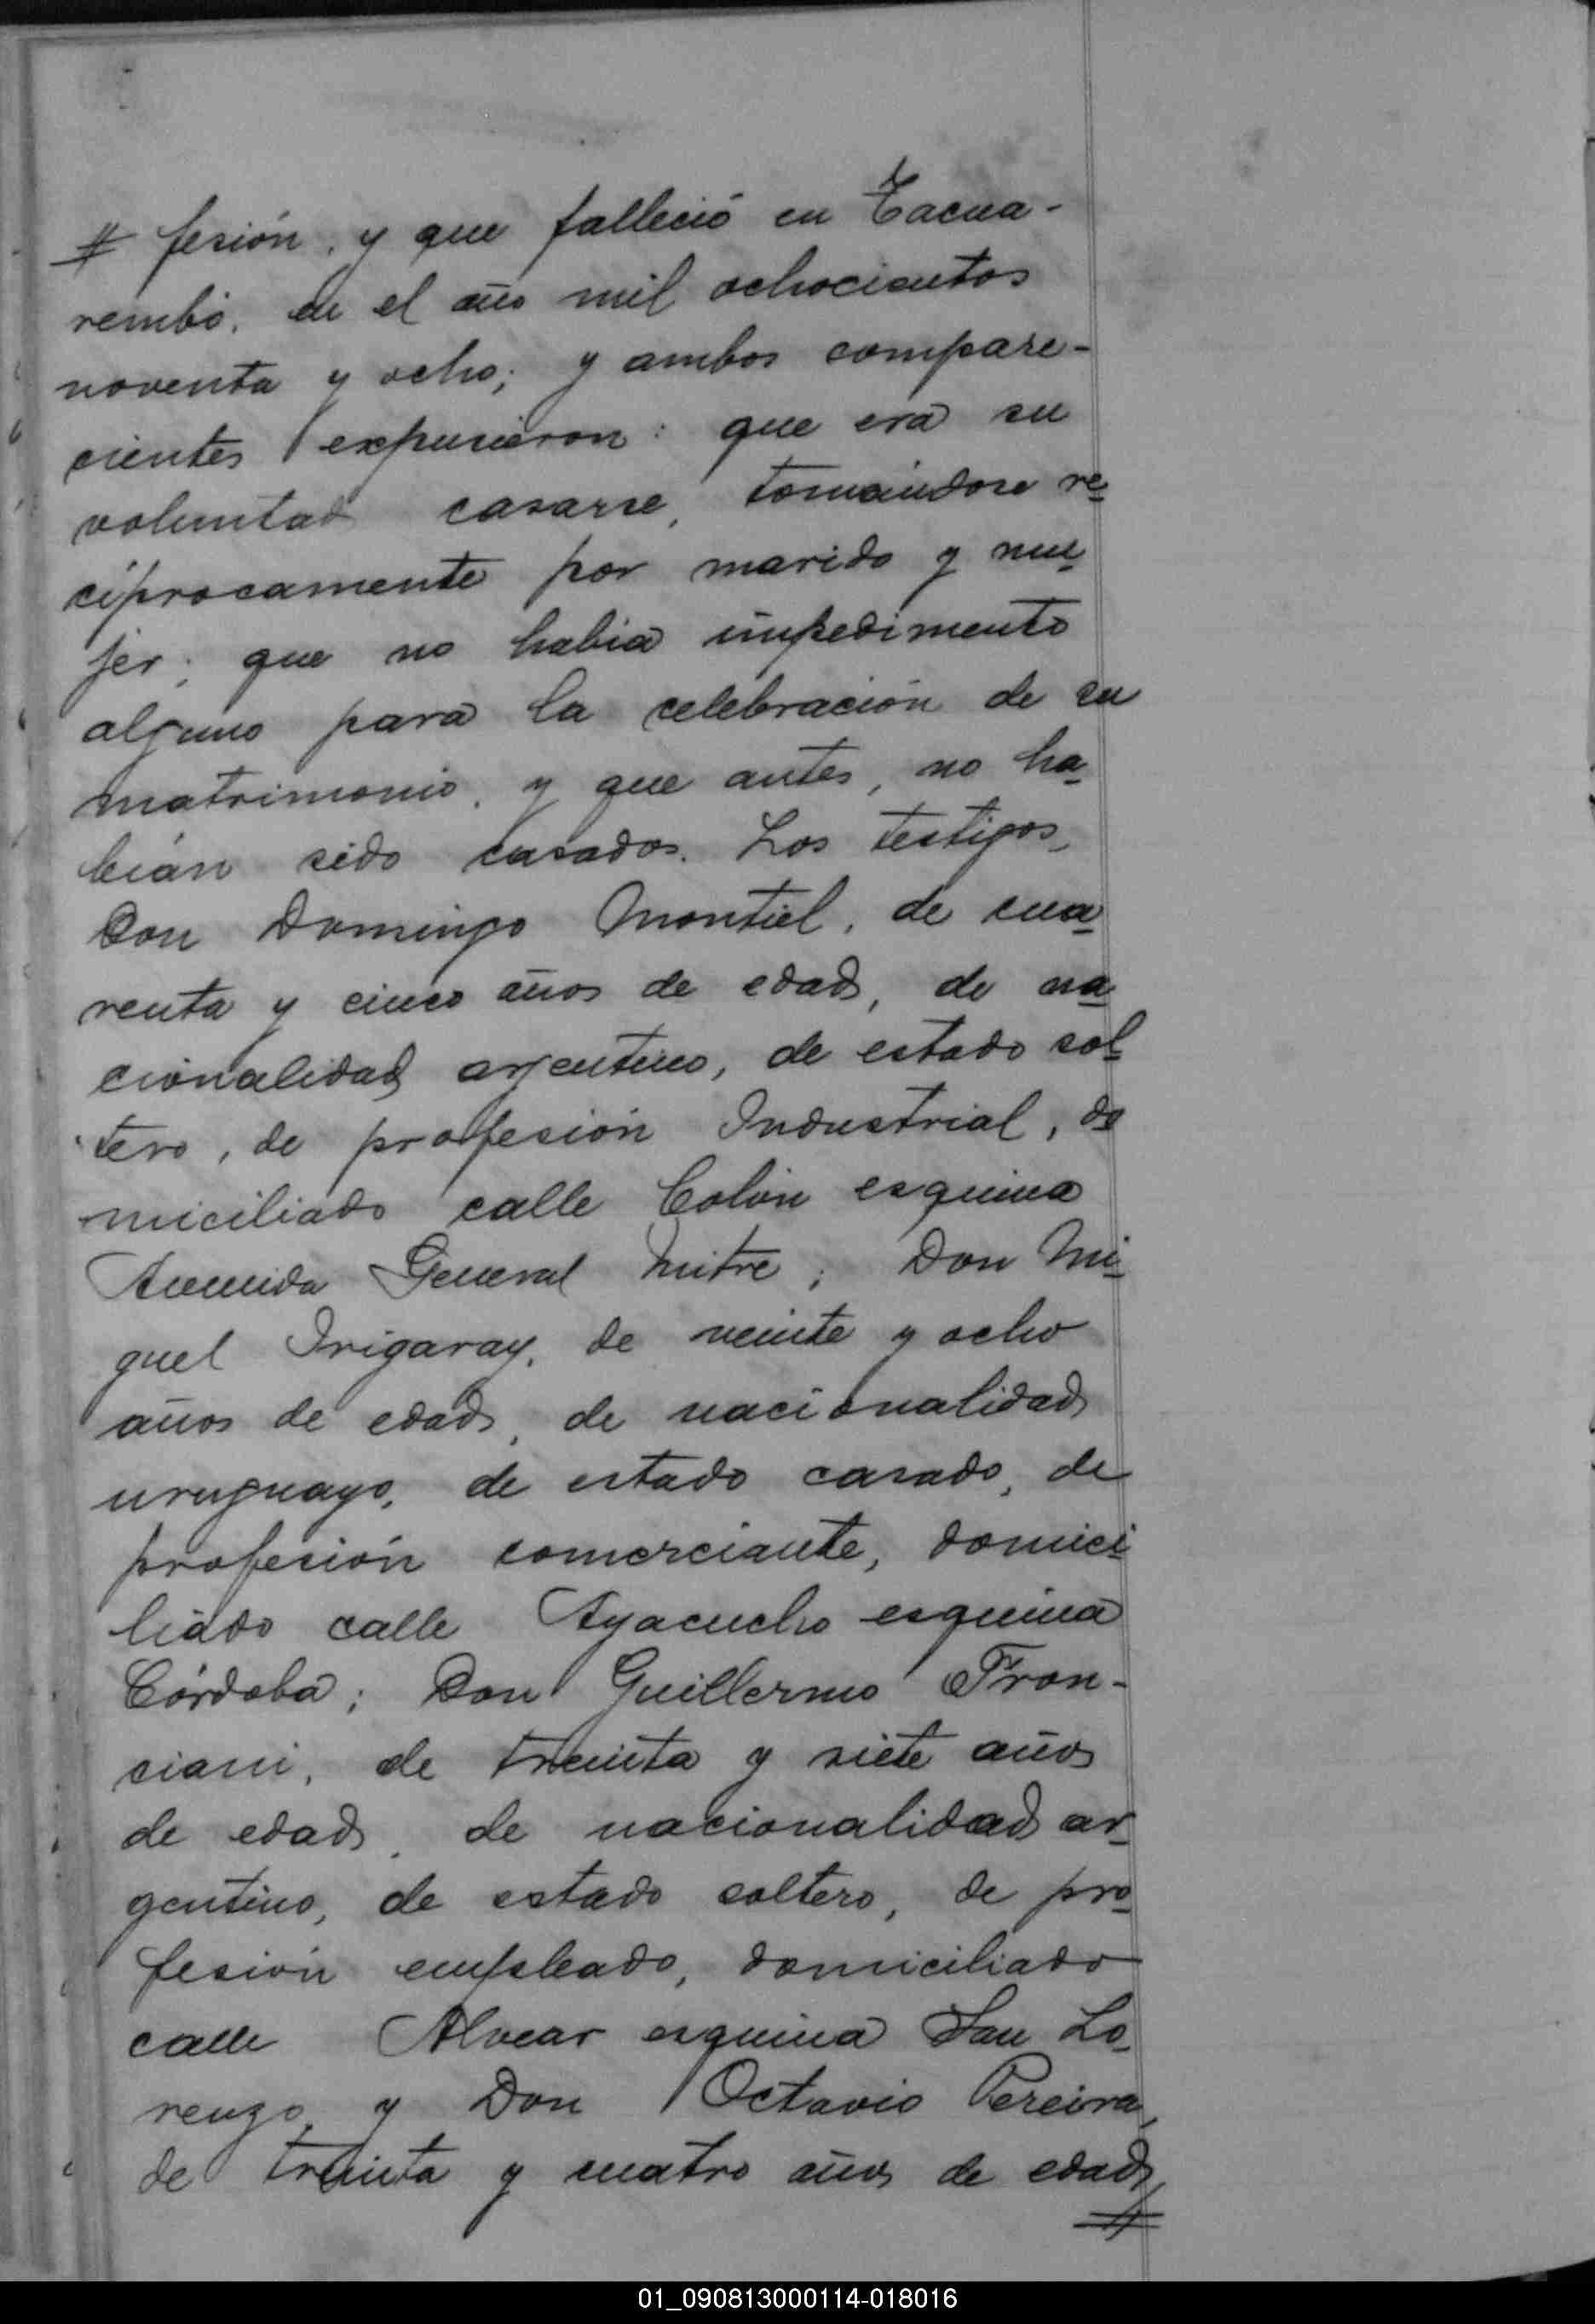 # fesión, y que falleció en Tacua-
rembó, en el año mil ochocientos
noventa y ocho; y ambos compare-
cientes expusieron: que era su
voluntad casarse, tomándose re
ciprocamente por marido y mu
jer; que no habia impedimento
alguno para la celebración de su
matrimonio, y que antes, no ha
bian sido casados. Los testigos,
Don Domingo Montiel, de cua
renta y cinco años de edad, de na
cionalidad arjentino, de estado sol
tero, de profesión Industrial, do
miciliado calle Colón esquina
Avenida General Mitre; Don Mi
guel Irigaray, de veinte y ocho
años de edad, de nacionalidad
uruguayo, de estado casado, de
profesión comerciante, domici
liado calle Ayacucho esquina
Córdoba; Don Guillermo Fran-
ciani, de treinta y siete años
de edad, de nacionalidad ar
gentino, de estado soltero, de pro
fesión empleado, domiciliado
calle Alvear esquina San Lo
renzo, y Don Octavio Pereira,
de treinta y cuatro años de edad,
#
01_090813000114-018016